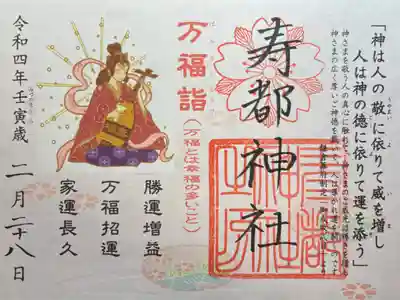 「神は人の敬に依りて威を増し
人は神の徳に依りて運を添う」
寿都神社
万福詣
(万福とは幸福の多いこと)
勝運増益
万福招運
家運長久
令和四年壬寅歳
二月二十八日